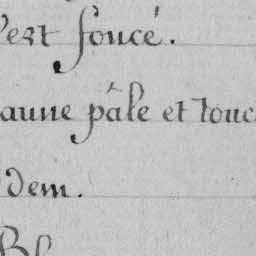 vert foncé.
jaune pâle et touc
idem.
Bl